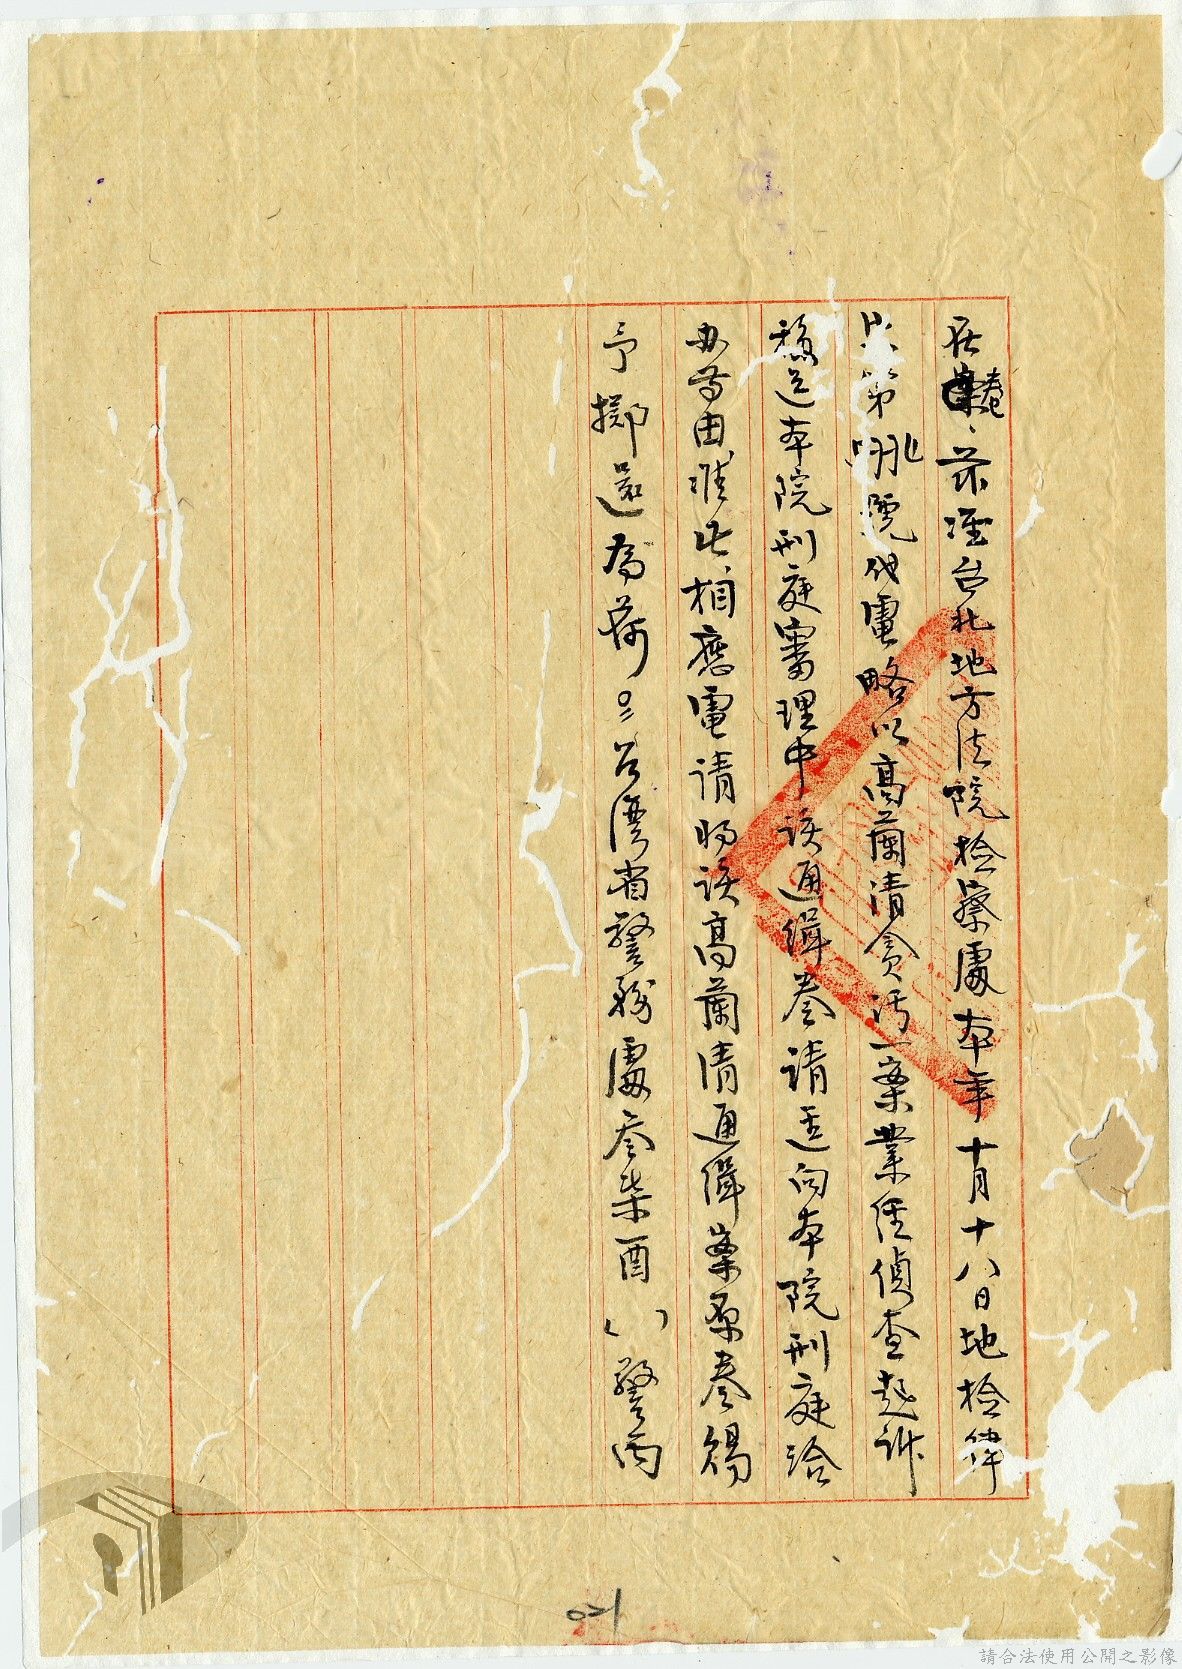 在卷、茲准台北地方法院檢察處本年十月十八日地檢律
第號代電略以高蘭清貪污一案業經偵查起訴
移送本院刑庭審理中該通緝卷請逕向本院刑庭洽
办等由准此相應電請將該高蘭清通緝案原卷賜
予擲還為荷台灣省警務處叁柒酉(  )警丙
請合法使用公開之影像